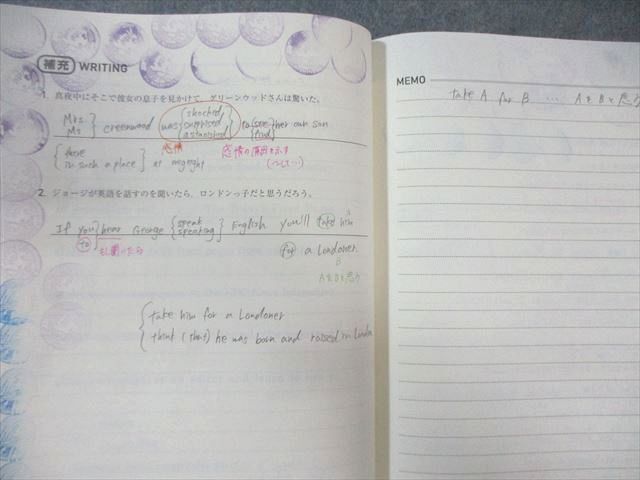 補充 WRITING
1. 真夜中にそこで彼女の息子を見かけて、グリーンウッドさんは驚いた。
Mrs. Ms } Greenwood was { shocked, surprised, astonished } to { see find } her own son
感情
{ there in such a place } at
感情の原因を示す
(〜して…)
2. ジョージが英語を話すのを聞いたら、ロンドンっ子だと思うだろう。
If you hear George { speak speaking } English you'll take him
A
to もし聞いたら
for a Londoner.
B
AをBと思う
{ take him for a Londoner
think (that) he was born and raised in
MEMO
take A for B … AをBと思う